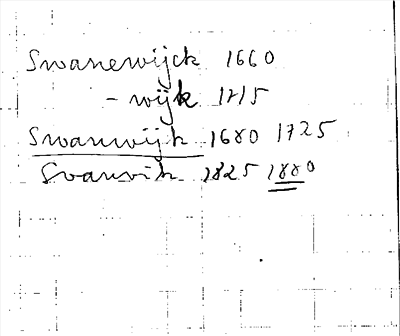 Swanewijck 1660
- wijk 1715
Swanwijk 1680 1725
Svanvik 1825 1880